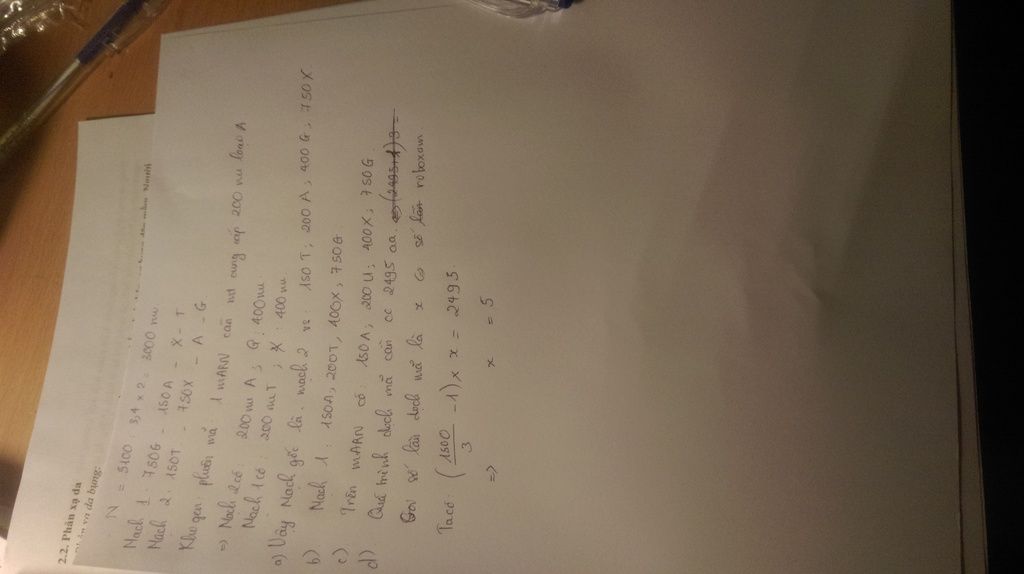 2.2. Phản xạ da
N = 5100 : 3,4 x 2 = 3000 nu
Mạch 1 : 750G - 150A - X - T
Mạch 2 : 150T - 750X - A - G
Khi gen phiên mã 1 mARN cần mt cung cấp 200 nu loại A
=> Mạch 2 có : 200 nu A ; G : 400 nu
Mạch 1 có : 200 nu T ; X : 400 nu
a) Vậy Mạch gốc là mạch 2 150 T ; 200 A ; 400 G ; 750 X
b) Mạch 1 : 150A ; 200T ; 400X ; 750G
c) Trên mARN có : 150 A ; 200 U ; 400X ; 750G
d) Quá trình dịch mã cần 2495 aa. (2495+1)3 =
Gọi số lần dịch mã là x số lần riboxom
Ta có : (1500/3 - 1) x x = 2495
=> x = 5